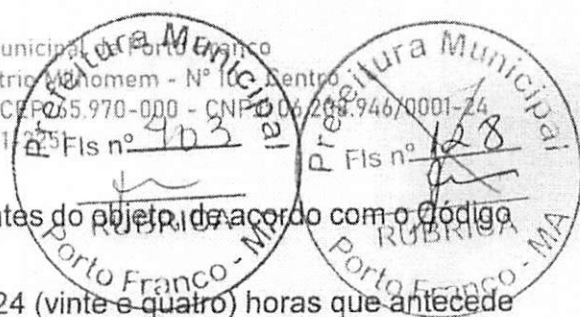 unicipal de Porto Franco
trio Manomem - Nº 10 - Centro
CEP 65.970-000 - CNPJ 06.208.946/0001-24
Prefeitura Municipal
Fls nº 403
RUBRICA
Porto Franco - MA
Prefeitura Municipal
Fls nº 128
RUBRICA
Porto Franco - MA
ntes do objeto, de acordo com o Código
24 (vinte e quatro) horas que antecede